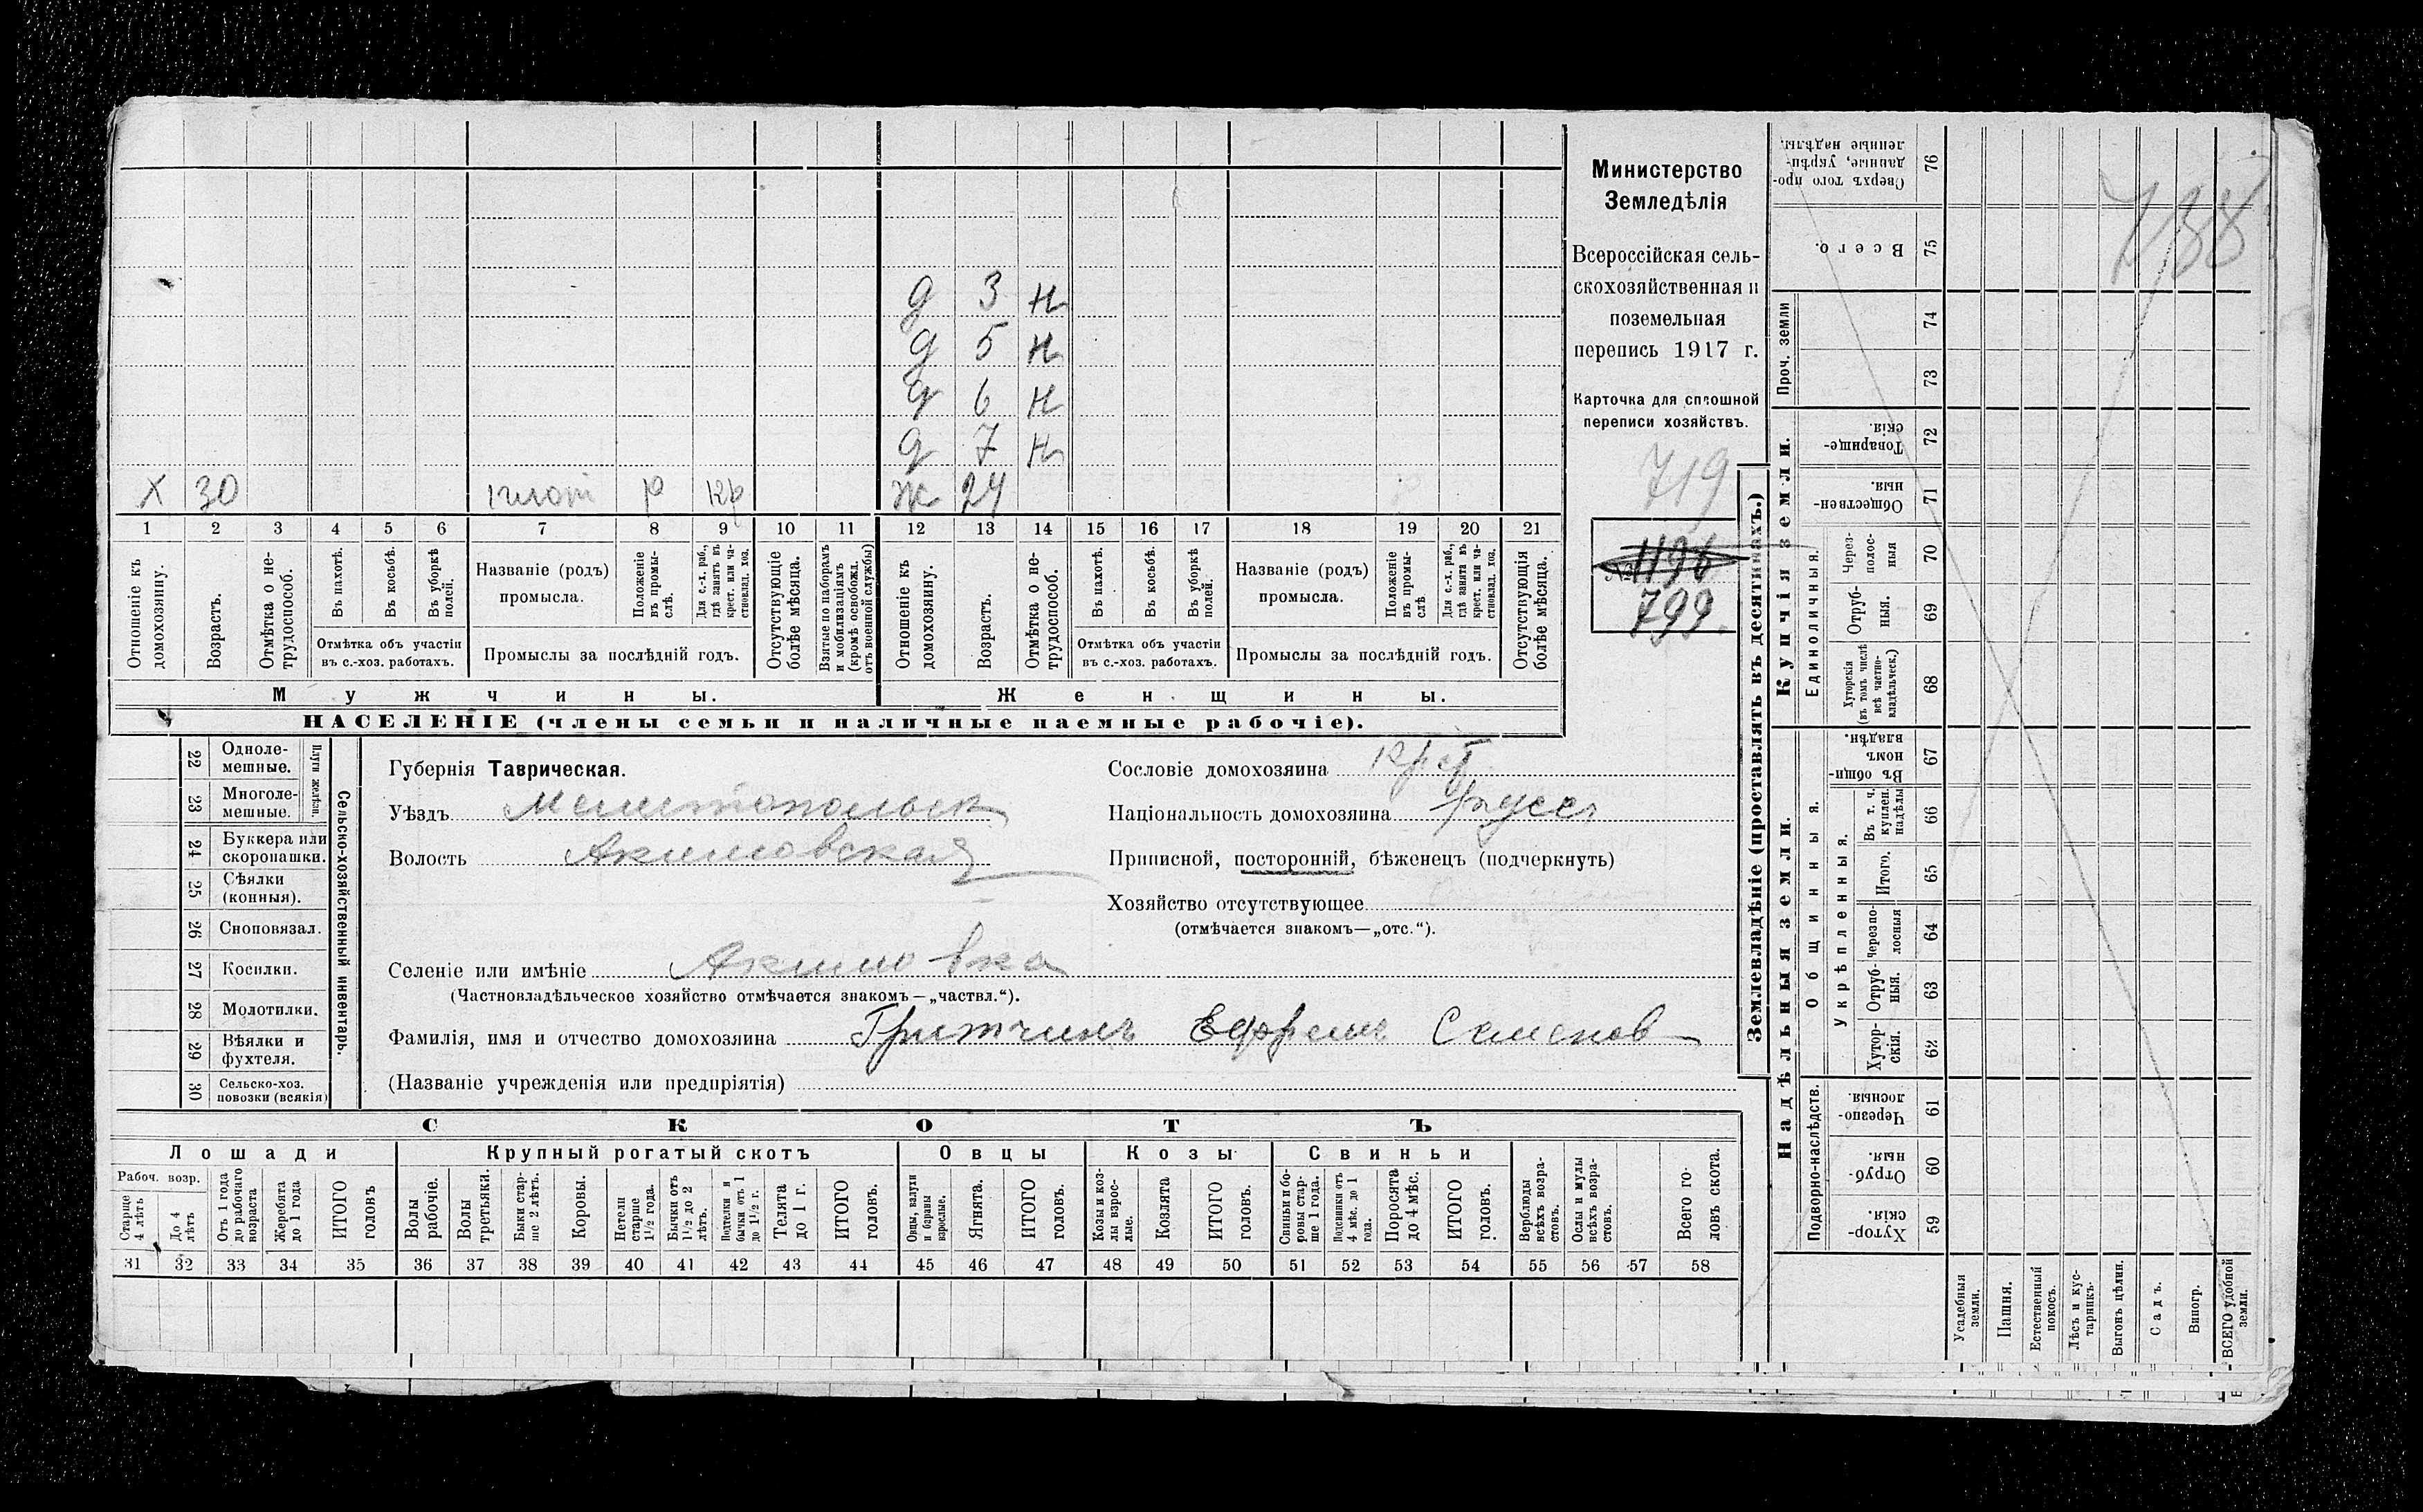 д 3 н
д 5 н
д 6 н
д 7 н
Х 30 плот р кр ж 24
1 2 3 4 5 6 7 8 9 10 11 12 13 14 15 16 17 18 19 20 21
Отношеніе къ домохозяину.
Возрастъ.
Отмѣтка о не-трудоспособ.
Въ пахотѣ.
Въ косьбѣ.
Въ уборкѣ полей.
Отмѣтка объ участіи
въ с.-хоз. работахъ.
Названіе (родъ)
промысла.
Положеніе въ промы-слѣ.
Для с.-х. раб., гдѣ занятъ въ крест. или ча-стновлад. хоз.
Промыслы за послѣдній годъ.
Отсутствующіе болѣе мѣсяца.
Взятые по наборамъ и мобилизаціямъ (кромѣ освобожд. отъ военной службы)
Отношеніе къ домохозяину.
Возрастъ.
Отмѣтка о не-трудоспособ.
Въ пахотѣ.
Въ косьбѣ.
Въ уборкѣ полей.
Отмѣтка объ участіи
въ с.-хоз. работахъ.
Названіе (родъ)
промысла.
Положеніе въ промы-слѣ
Для с.-х. раб., гдѣ занята въ крест. или ча-стновлад. хоз.
Промыслы за послѣдній годъ.
Отсутствующія болѣе мѣсяца.
Мужчины.
Женщины.
НАСЕЛЕНІЕ (члены семьи и наличные наемные рабочіе).
Министерство
Земледѣлія
Всероссійская сель-
скохозяйственная и
поземельная
перепись 1917 г.
Карточка для сплошной
переписи хозяйствъ.
719
№ 1196
799
22 Одноле-мешные.
23 Многоле-мешные.
Плуги желѣзн.
24 Буккера или скоропашки.
25 Сѣялки (конныя).
26 Сноповязал.
27 Косилки.
28 Молотилки.
29 Вѣялки и фухтеля.
30 Сельско-хоз. повозки (всякія)
Сельско-хозяйственный инвентарь.
Губернія Таврическая.
Уѣздъ Мелитопольск
Волость Акимовская
Селеніе или имѣніе Акимовка
(Частновладѣльческое хозяйство отмѣчается знакомъ—„частвл.“).
Фамилія, имя и отчество домохозяина Гритчинъ Ефремъ Семенов
(Названіе учрежденія или предпріятія)
Сословіе домохозяина крест.
Національность домохозяина русск
Приписной, посторонній, бѣженецъ (подчеркнуть)
Хозяйство отсутствующее
(отмѣчается знакомъ—„отс.“).
СКОТЪ
Лошади
Крупный рогатый скотъ
Овцы
Козы
Свиньи
Рабоч. возр.
Старше 4 лѣтъ
До 4 лѣтъ
Отъ 1 года до рабочаго возраста
Жеребята до 1 года
ИТОГО головъ
Волы рабочіе.
Волы третьяки.
Быки стар-ше 2 лѣтъ.
Коровы.
Нетели старше 1½ года.
Бычки отъ 1½ до 2 лѣтъ.
Подтелки и бычки отъ 1 до 1½ г.
Телята до 1 г.
ИТОГО головъ.
Овцы, валухи и бараны взрослые.
Ягнята.
ИТОГО головъ.
Козы и коз-лы взрос-лые.
Козлята
ИТОГО головъ.
Свиньи и бо-ровы стар-ше 1 года.
Подсвинки отъ 4 мѣс. до 1 года.
Поросята до 4 мѣс.
ИТОГО головъ.
Верблюды всѣхъ возра-стовъ.
Ослы и мулы всѣхъ возра-стовъ.
Всего го-ловъ скота.
31 32 33 34 35 36 37 38 39 40 41 42 43 44 45 46 47 48 49 50 51 52 53 54 55 56 57 58
Землевладѣніе (проставлять въ десятинахъ.)
Купчія земли.
Надѣльныя земли.
Проч. земли
Единоличныя.
Общинныя.
Укрѣпленныя.
Подворно-наслѣдств.
Сверхъ того про-данные, укрѣп-ленные надѣлы. 76
Всего. 75
74
73
Товарище-скія. 72
Обществен-ныя. 71
Через-полос-ныя 70
Отруб-ныя. 69
Хуторскія (въ томъ числѣ всѣ частно-владѣльческ.) 68
Въ общи-номъ владѣн. 67
Въ т. ч. куплен. надѣлы 66
Итого. 65
Черезпо-лосныя 64
Отруб-ныя. 63
Хутор-скія. 62
Черезпо-лосныя. 61
Отруб-ныя. 60
Хутор-скія. 59
Усадебныя земли.
Пашня.
Естественный покосъ.
Лѣсъ и кус-тарникъ.
Выгонъ цѣлин.
Садъ.
Виногр.
ВСЕГО удобной земли.
788